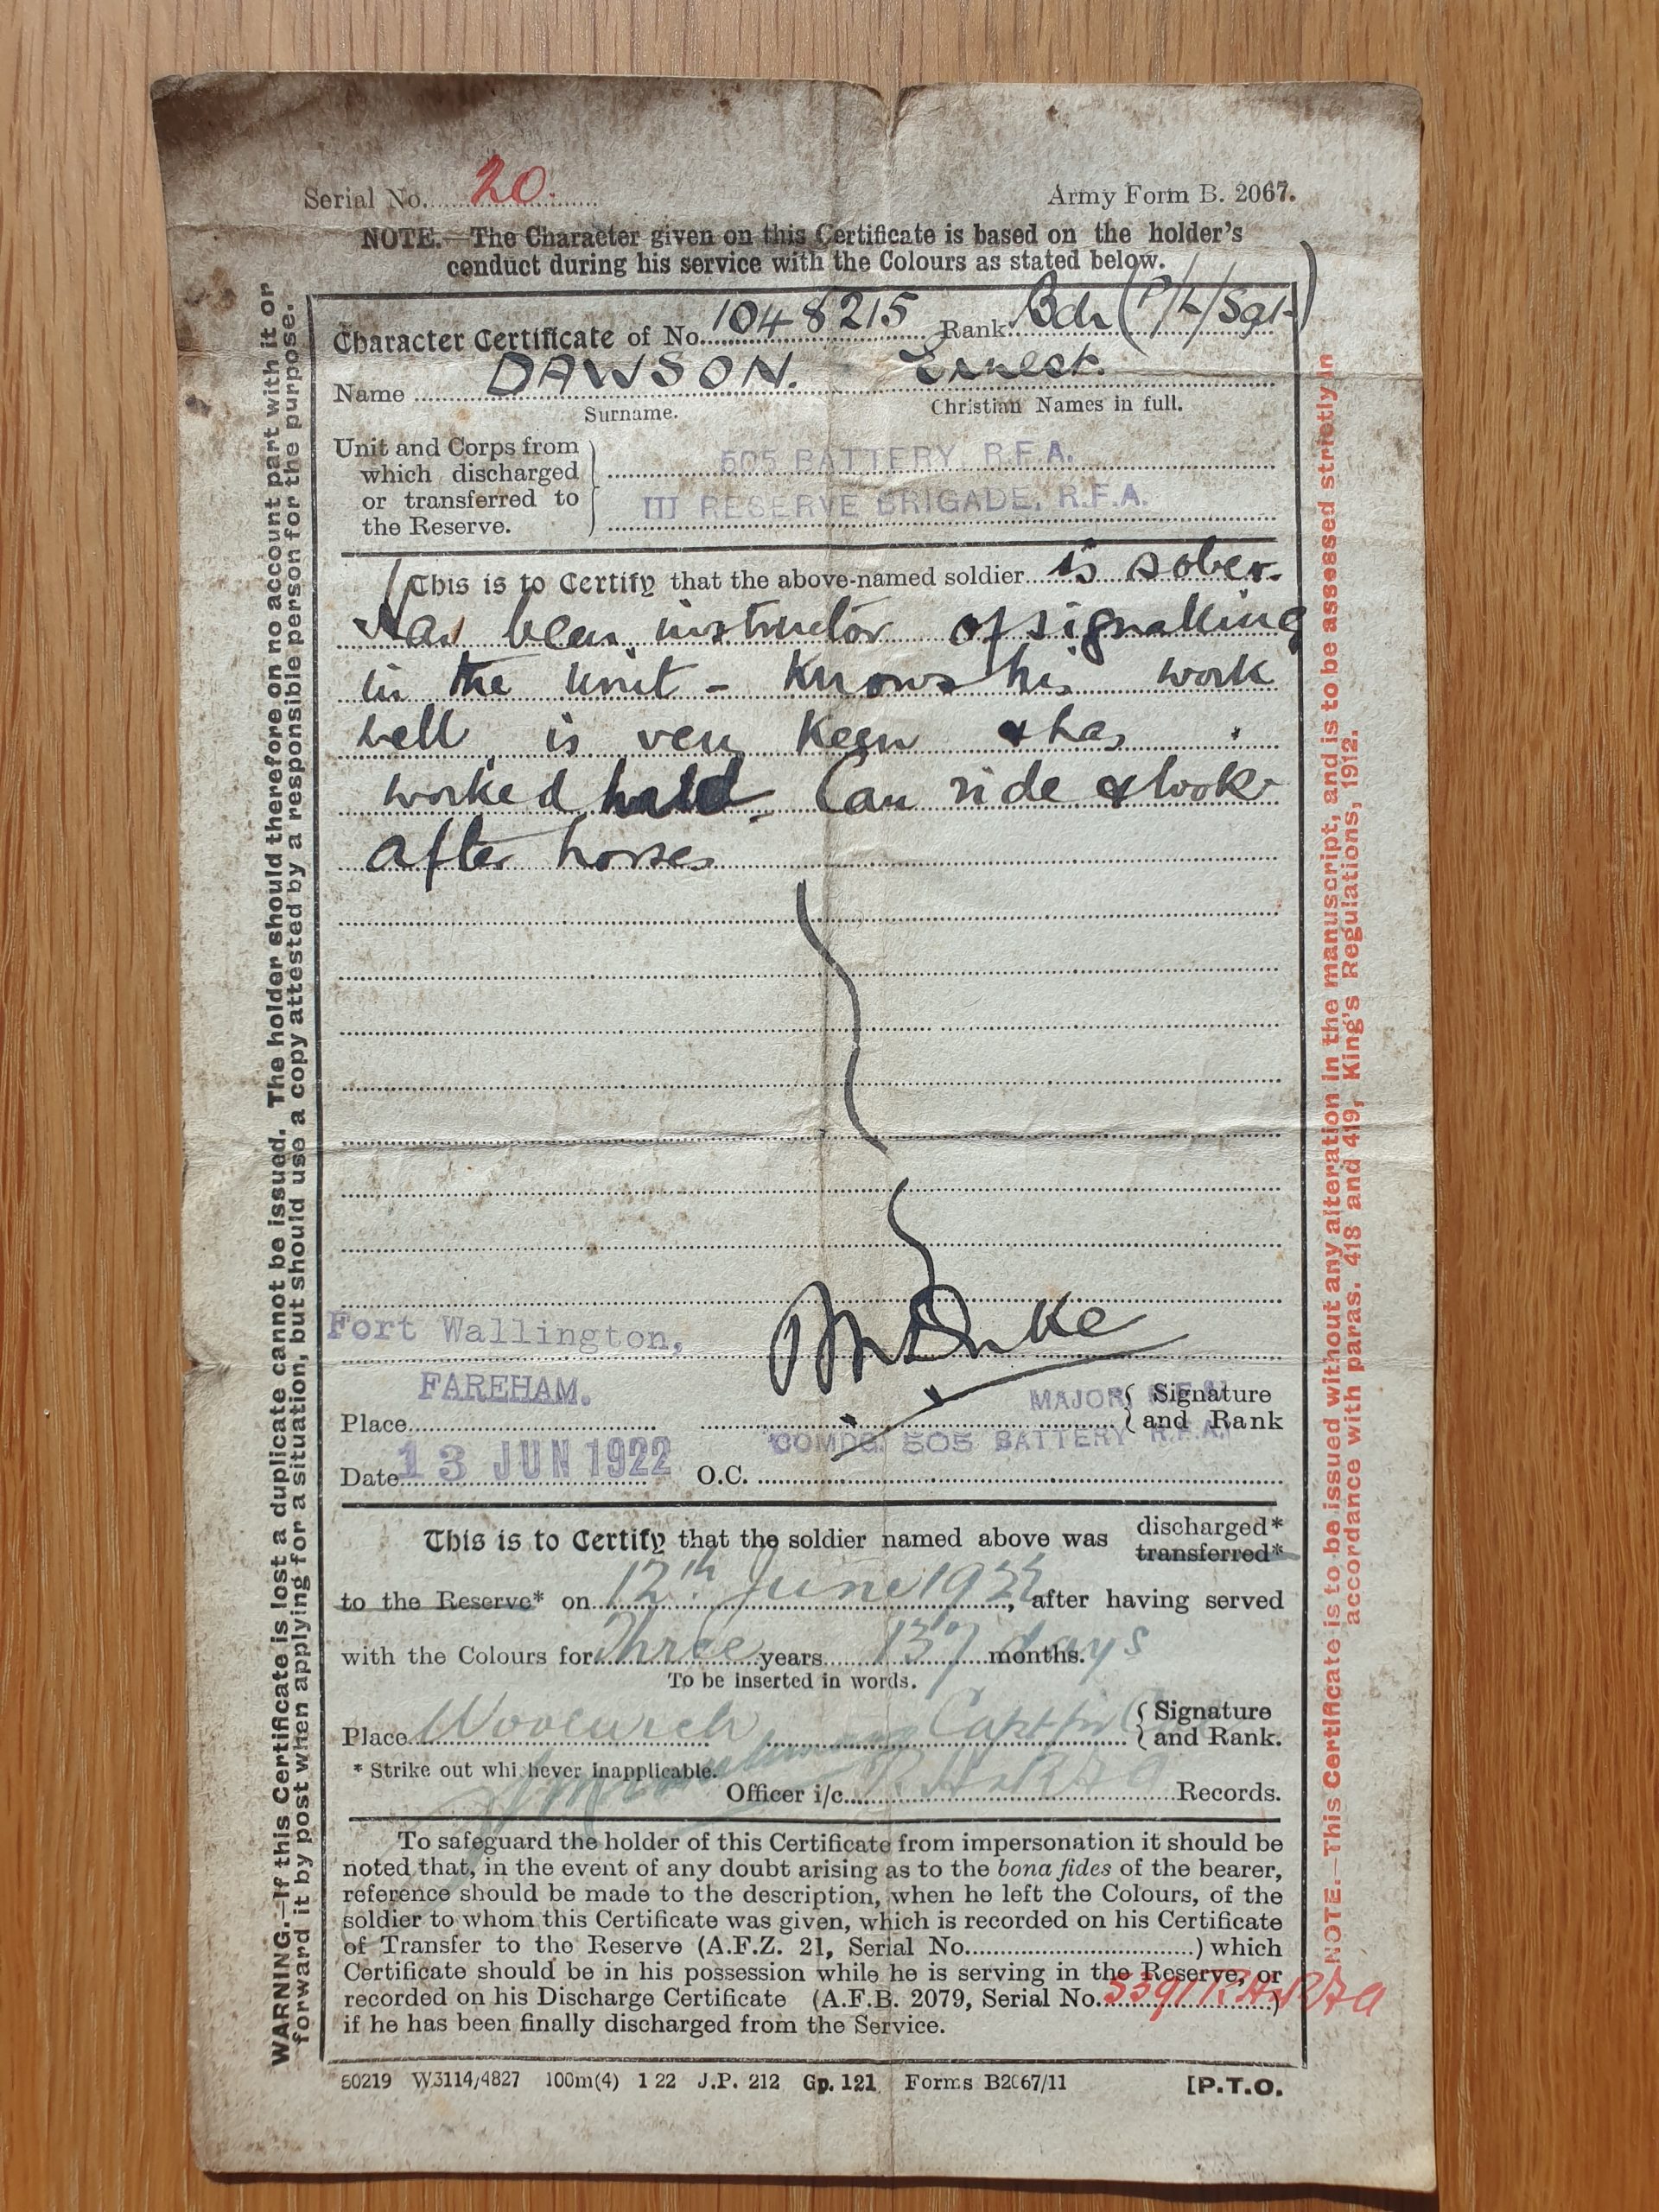 Serial No. 20. Army Form B. 2067.
NOTE.—The Character given on this Certificate is based on the holder's
conduct during his service with the Colours as stated below.
Character Certificate of No. 1048215 Rank Bdr (P/L/Sgt)
Name DAWSON. Ernest.
Surname. Christian Names in full.
Unit and Corps from
which discharged
or transferred to
the Reserve.
505 BATTERY, R.F.A.
III RESERVE BRIGADE, R.F.A.
This is to Certify that the above-named soldier is sober.
Has been instructor of signalling
in the unit - knows his work
well is very keen & has
worked hard. Can ride & look
after horses
Fort Wallington,
FAREHAM.
MAJOR, R.F.A.
Signature
and Rank
Place
COMDG. 505 BATTERY R.F.A.
Date 13 JUN 1922 O.C.
This is to Certify that the soldier named above was discharged*
transferred*
to the Reserve* on 12th June 1922, after having served
with the Colours for Three years 137 days months.
To be inserted in words.
Place Woolwich Capt for Signature
and Rank.
* Strike out whichever inapplicable.
Officer i/c R.H. & R.F.A. Records.
To safeguard the holder of this Certificate from impersonation it should be
noted that, in the event of any doubt arising as to the bona fides of the bearer,
reference should be made to the description, when he left the Colours, of the
soldier to whom this Certificate was given, which is recorded on his Certificate
of Transfer to the Reserve (A.F.Z. 21, Serial No. ) which
Certificate should be in his possession while he is serving in the Reserve, or
recorded on his Discharge Certificate (A.F.B. 2079, Serial No. 5391 RH&RFA)
if he has been finally discharged from the Service.
60219 W3114/4827 100m(4) 1 22 J.P. 212 Gp. 121 Forms B2067/11 [P.T.O.
WARNING.—If this Certificate is lost a duplicate cannot be issued. The holder should therefore on no account part with it or
forward it by post when applying for a situation, but should use a copy attested by a responsible person for the purpose.
NOTE.—This Certificate is to be issued without any alteration in the manuscript, and is to be assessed strictly in
accordance with paras. 418 and 419, King's Regulations, 1912.